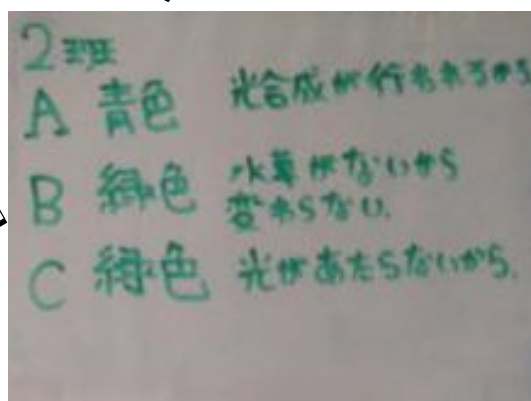 2班
A 青色 光合成が行われるから
B 緑色 水草がないから
変わらない.
C 緑色 光があたらないから.